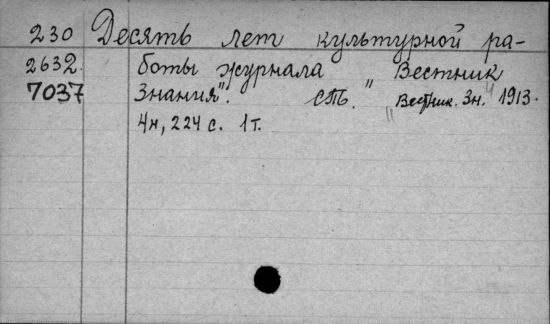 230 Десять лет культурной ра-
2632. боты журнала "Вестник
7037 Знания". ст. "Вестник. Зн." 1913.
4н, 224 с. 1т.